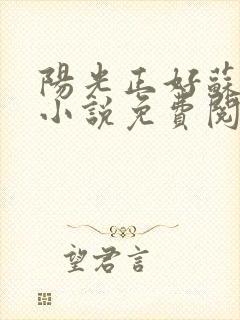 陽光正好蘇
小說免費閱
望君言